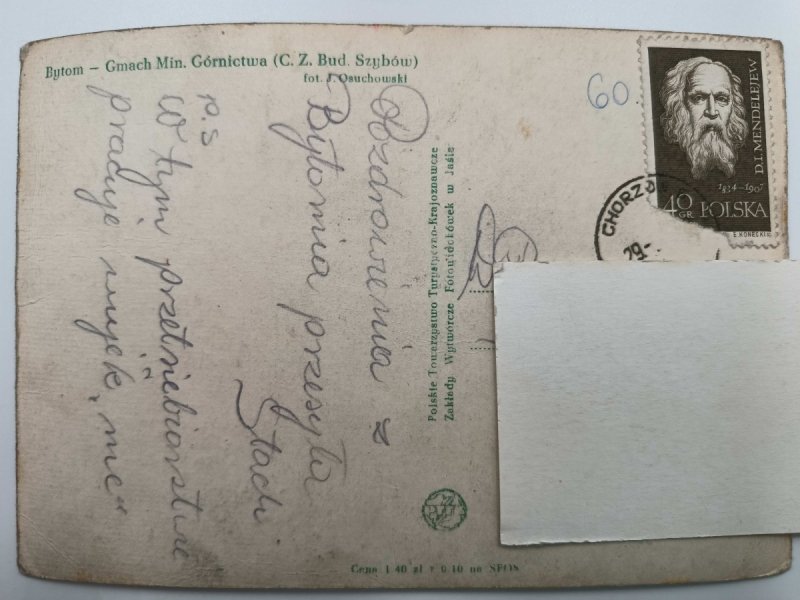 Bytom – Gmach Min. Górnictwa (C. Z. Bud. Szybów)
fot. J. Osuchowski
60
D.I. MENDELEJEW
1834–1907
40 GR POLSKA
E. KONECKI
CHORZ
29-
Pozdrowienia z
Bytomia przesyła
Stach
p.s
w tym przedsiębiorstwie
pracuje wujek
Polskie Towarzystwo Turystyczno-Krajoznawcze
Zakłady Wytwórcze Fotowidokówek w Jaśle
Cena 1.40 zł + 0.10 na SFOS